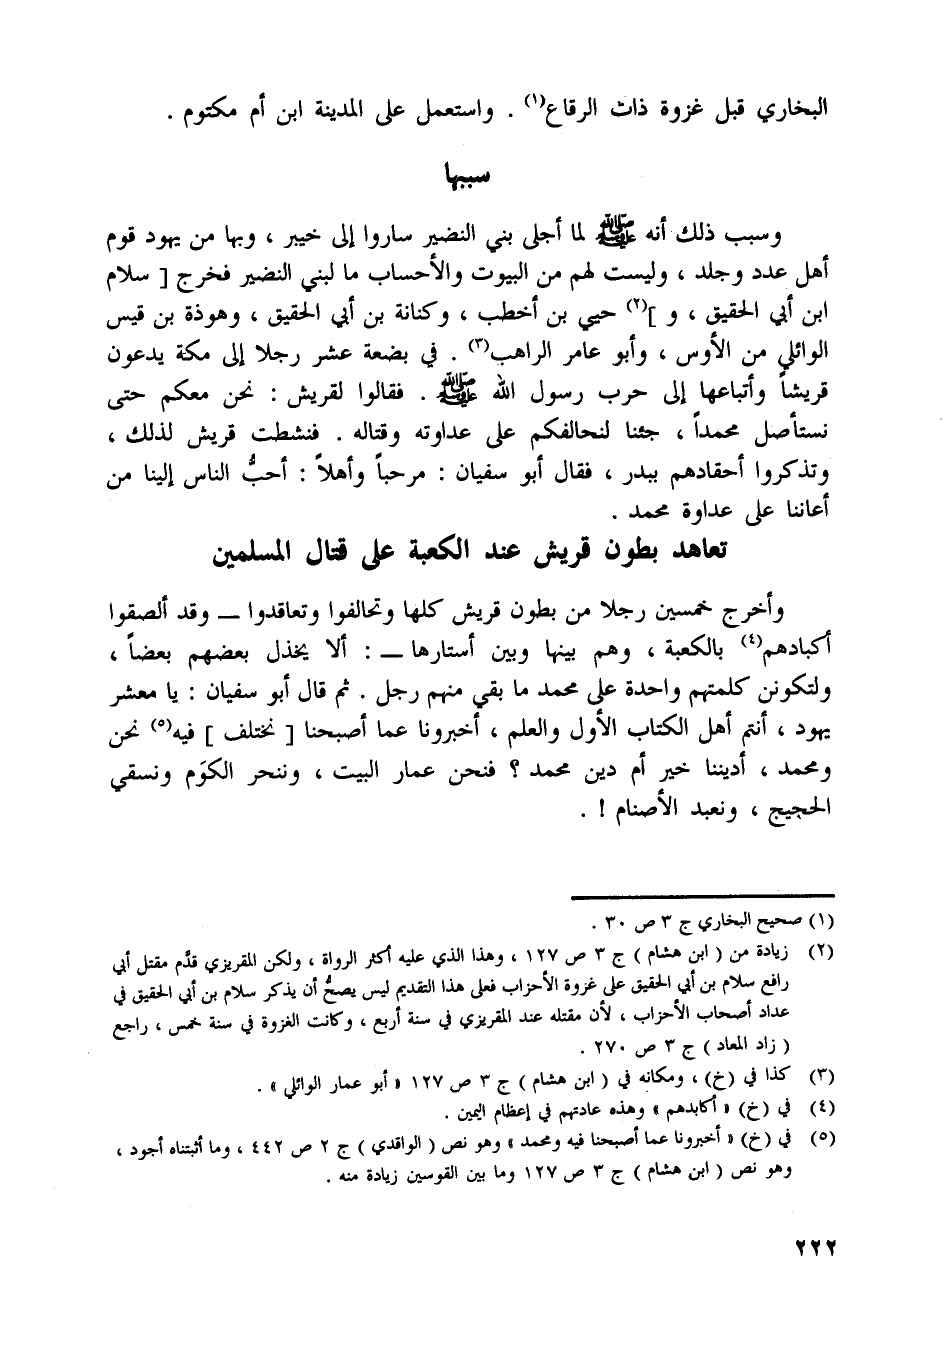 البخاري قبل غزوة ذات الرقاع(١) . واستعمل على المدينة ابن أم مكتوم .
سببها
وسبب ذلك أنه ﷺ لما أجلى بني النضير ساروا إلى خيبر ، وبها من يهود قوم
أهل عدد وجلد ، وليست لهم من البيوت والأحساب ما لبني النضير فخرج [ سلام
ابن أبي الحقيق ، و ](٢) حيي بن أخطب ، وكنانة بن أبي الحقيق ، وهوذة بن قيس
الوائلي من الأوس ، وأبو عامر الراهب(٣) . في بضعة عشر رجلا إلى مكة يدعون
قريشاً وأتباعها إلى حرب رسول الله ﷺ . فقالوا لقريش : نحن معكم حتى
نستأصل محمداً ، جئنا لنحالفكم على عداوته وقتاله . فنشطت قريش لذلك ،
وتذكروا أحقادهم ببدر ، فقال أبو سفيان : مرحباً وأهلاً : أحبُّ الناس إلينا من
أعاننا على عداوة محمد .
تعاهد بطون قريش عند الكعبة على قتال المسلمين
وأخرج خمسين رجلا من بطون قريش كلها وتحالفوا وتعاقدوا ــ وقد ألصقوا
أكبادهم(٤) بالكعبة ، وهم بينها وبين أستارها ــ : ألا يخذل بعضهم بعضاً ،
ولتكونن كلمتهم واحدة على محمد ما بقي منهم رجل . ثم قال أبو سفيان : يا معشر
يهود ، أنتم أهل الكتاب الأول والعلم ، أخبرونا عما أصبحنا [ نختلف ] فيه(٥) نحن
ومحمد ، أديننا خير أم دين محمد ؟ فنحن عمار البيت ، وننحر الكوَم ونسقي
الحجيج ، ونعبد الأصنام ! .
(١) صحيح البخاري ج ٣ ص ٣٠ .
(٢) زيادة من ( ابن هشام ) ج ٣ ص ١٢٧ ، وهذا الذي عليه أكثر الرواة ، ولكن المقريزي قدَّم مقتل أبي
رافع سلام بن أبي الحقيق على غزوة الأحزاب فعلى هذا التقديم ليس يصحُّ أن يذكر سلام بن أبي الحقيق في
عداد أصحاب الأحزاب ، لأن مقتله عند المقريزي في سنة أربع ، وكانت الغزوة في سنة خمس ، راجع
( زاد المعاد ) ج ٣ ص ٢٧٠ .
(٣) كذا في (خ) ، ومكانه في ( ابن هشام ) ج ٣ ص ١٢٧ « أبو عمار الوائلي » .
(٤) في (خ) « أكابدهم » وهذه عادتهم في إعظام اليمين .
(٥) في (خ) « أخبرونا عما أصبحنا فيه ومحمد » وهو نص ( الواقدي ) ج ٢ ص ٤٤٢ ، وما أثبتناه أجود ،
وهو نص ( ابن هشام ) ج ٣ ص ١٢٧ وما بين القوسين زيادة منه .
٢٢٢